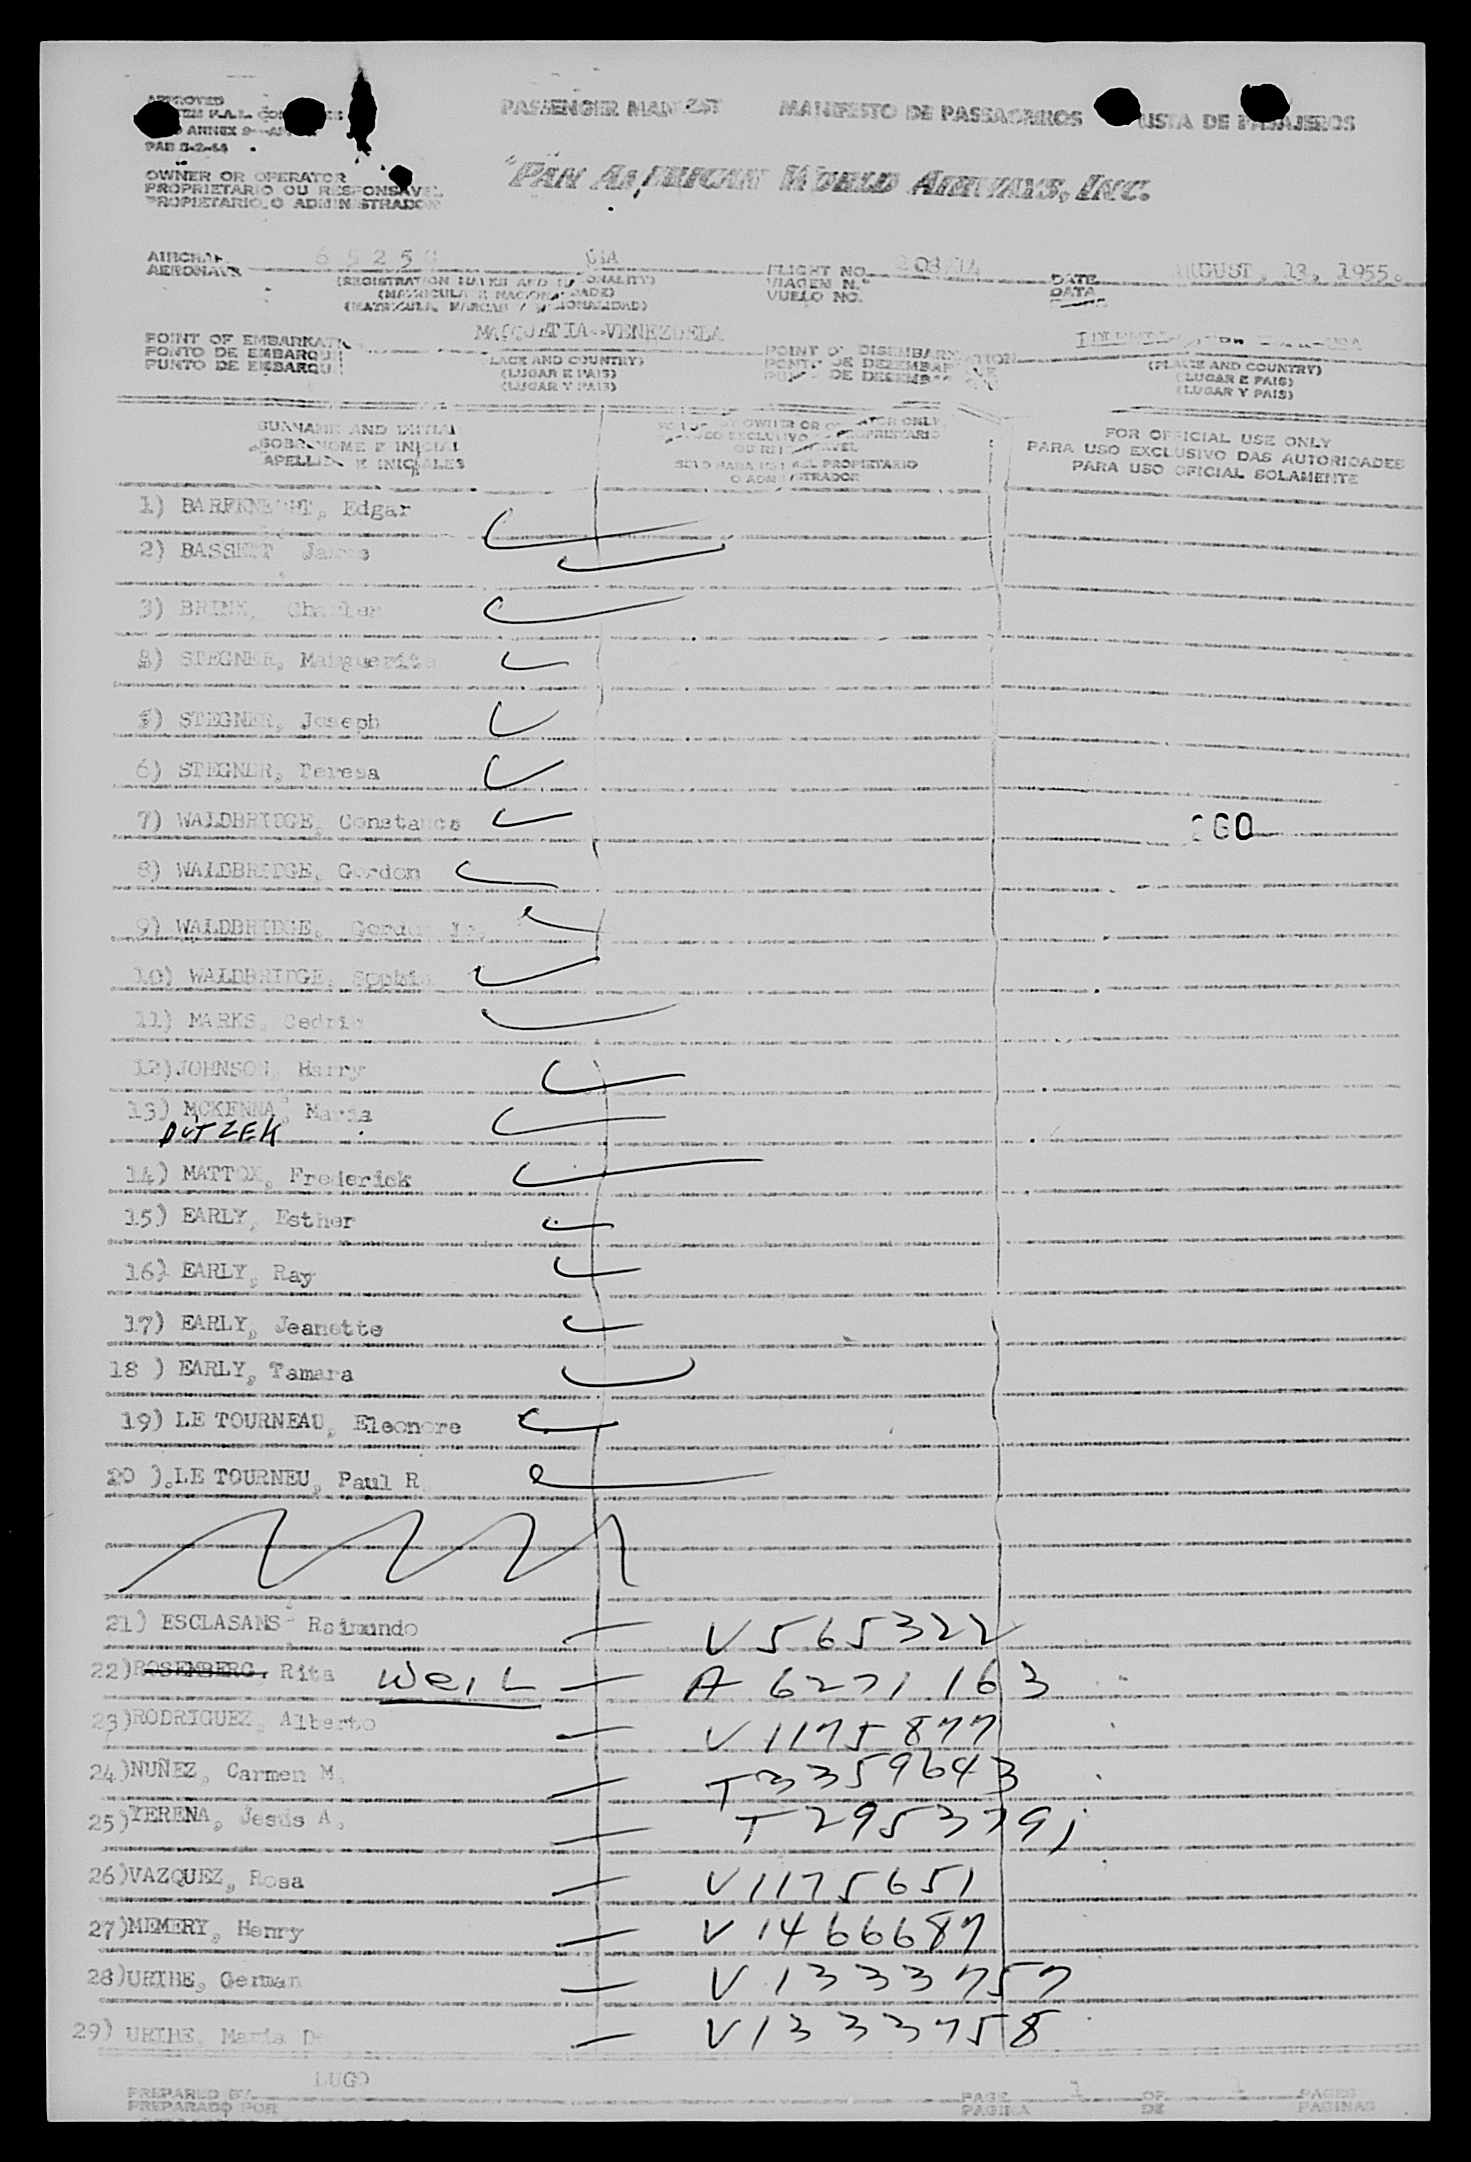 APPROVED
ANNEX 9
PASSENGER MANIFEST MANIFESTO DE PASSAGEIROS LISTA DE PASAJEROS
OWNER OR OPERATOR
PROPRIETARIO OU RESPONSAVEL
PROPIETARIO O ADMINISTRADOR
PAN AMERICAN WORLD AIRWAYS, INC.
AIRCRAFT
AERONAVE
(REGISTRATION MARKS AND NATIONALITY)
(MATRICULA E NACIONALIDADE)
(MATRICULA, MARCAS Y NACIONALIDAD)
FLIGHT NO.
VIAGEM N.º
VUELO NO.
DATE AUGUST, 13, 1955.
DATA
POINT OF EMBARKATION MAIQUETIA-VENEZUELA
PONTO DE EMBARQUE
PUNTO DE EMBARQUE
(PLACE AND COUNTRY)
(LUGAR E PAIS)
(LUGAR Y PAIS)
POINT OF DISEMBARKATION
PONTO DE DESEMBARQUE
PUNTO DE DESEMBARQUE
(PLACE AND COUNTRY)
(LUGAR E PAIS)
(LUGAR Y PAIS)
SURNAME AND INITIAL
SOBRENOME E INICIAL
APELLIDO E INICIALES
FOR USE BY OWNER OR OPERATOR ONLY
USO EXCLUSIVO DO PROPRIETARIO
OU RESPONSAVEL
SOLO PARA USO DEL PROPIETARIO
O ADMINISTRADOR
FOR OFFICIAL USE ONLY
PARA USO EXCLUSIVO DAS AUTORIDADES
PARA USO OFICIAL SOLAMENTE
1) Edgar
2) BASSETT James
3) Charles
STEGNER, Marguerite
STEGNER, Joseph
6) STEGNER, Teresa
7) WALDBRIDGE, Constance
8) WALDBRIDGE, Gordon
9) WALDBRIDGE, Gordon
10) WALDBRIDGE, Sophia
11) MARKS, Cedric
12)JOHNSON, Harry
13) MCKENNA, Maria
DUTZEK
14) MATTOX, Frederick
15) EARLY, Esther
16) EARLY, Ray
17) EARLY, Jeanette
18 ) EARLY, Tamara
19) LE TOURNEAU, Eleonore
20 ).LE TOURNEU, Paul R
21) ESCLASANS- Raimundo V 565322
22)ROSENBERG, Rita WeiL A 6271163
23)RODRIGUEZ, Alberto V 1175877
24)NUÑEZ, Carmen M. T 3359643
25)YERENA, Jesus A. T 2953791
26)VAZQUEZ, Rosa V1175651
27)MEMERY, Henry V 1466687
28)URIBE, German V 1333757
29) URIBE, Maria D V1333758
PREPARED BY LUGO
PREPARADO POR
PAGE 1 OF 1 PAGES
PAGINA DE PAGINAS